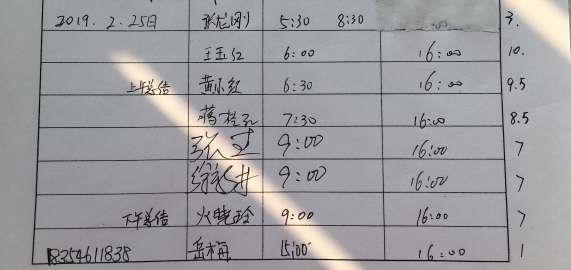 2019. 2. 25日 张龙刚 5:30 8:30 3.
王玉红 6:00 16:00 10.
上午总结 黄小红 6:30 16:00 9.5
蒋桂孔 7:30 16:00 8.5
9:00 16:00 7
9:00 16:00 7
下午总结 火晓玲 9:00 16:00 7
18354611838 岳梅 15:00 16:00 1